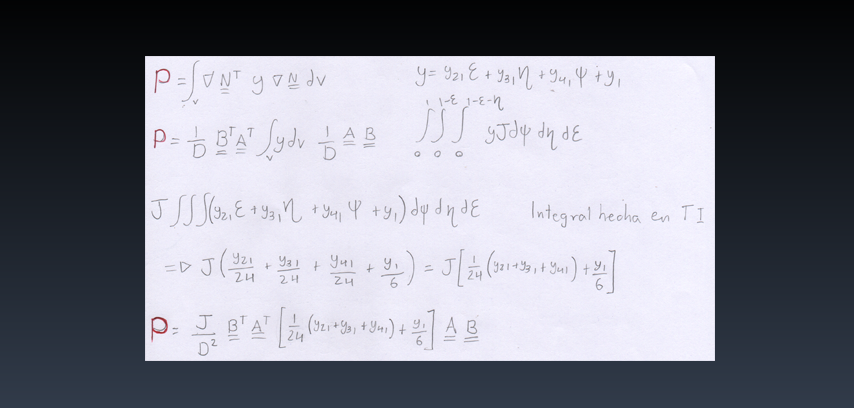 P = ∫_v ∇N̲ᵀ y ∇N̲ dv    y = y₂₁ε + y₃₁η + y₄₁ψ + y₁
P = 1/D B̲ᵀA̲ᵀ ∫_v y dv 1/D A̲ B̲    ∫₀¹ ∫₀^(1-ε) ∫₀^(1-ε-η) yJ dψ dη dε
J ∫∫∫ (y₂₁ε + y₃₁η + y₄₁ψ + y₁) dψ dη dε    Integral hecha en TI
=> J (y₂₁/24 + y₃₁/24 + y₄₁/24 + y₁/6) = J [1/24 (y₂₁ + y₃₁ + y₄₁) + y₁/6]
P = J/D² B̲ᵀ A̲ᵀ [1/24 (y₂₁ + y₃₁ + y₄₁) + y₁/6] A̲ B̲